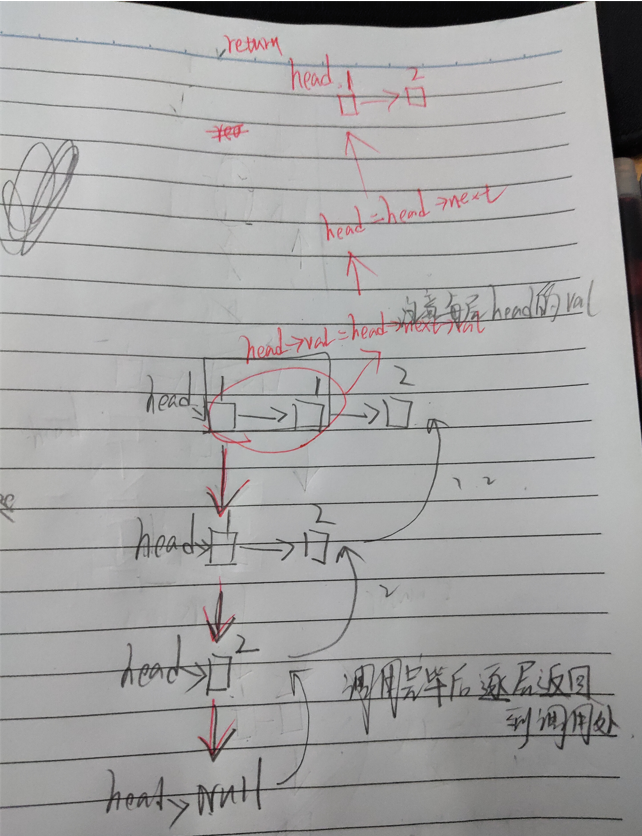 return
head 1 2
head=head→next
注意每层head的val
head→val=head→next→val
head 1 1 2
1 2
head 1 2
2
head 2
调用完毕后逐层返回
到调用处
head→null